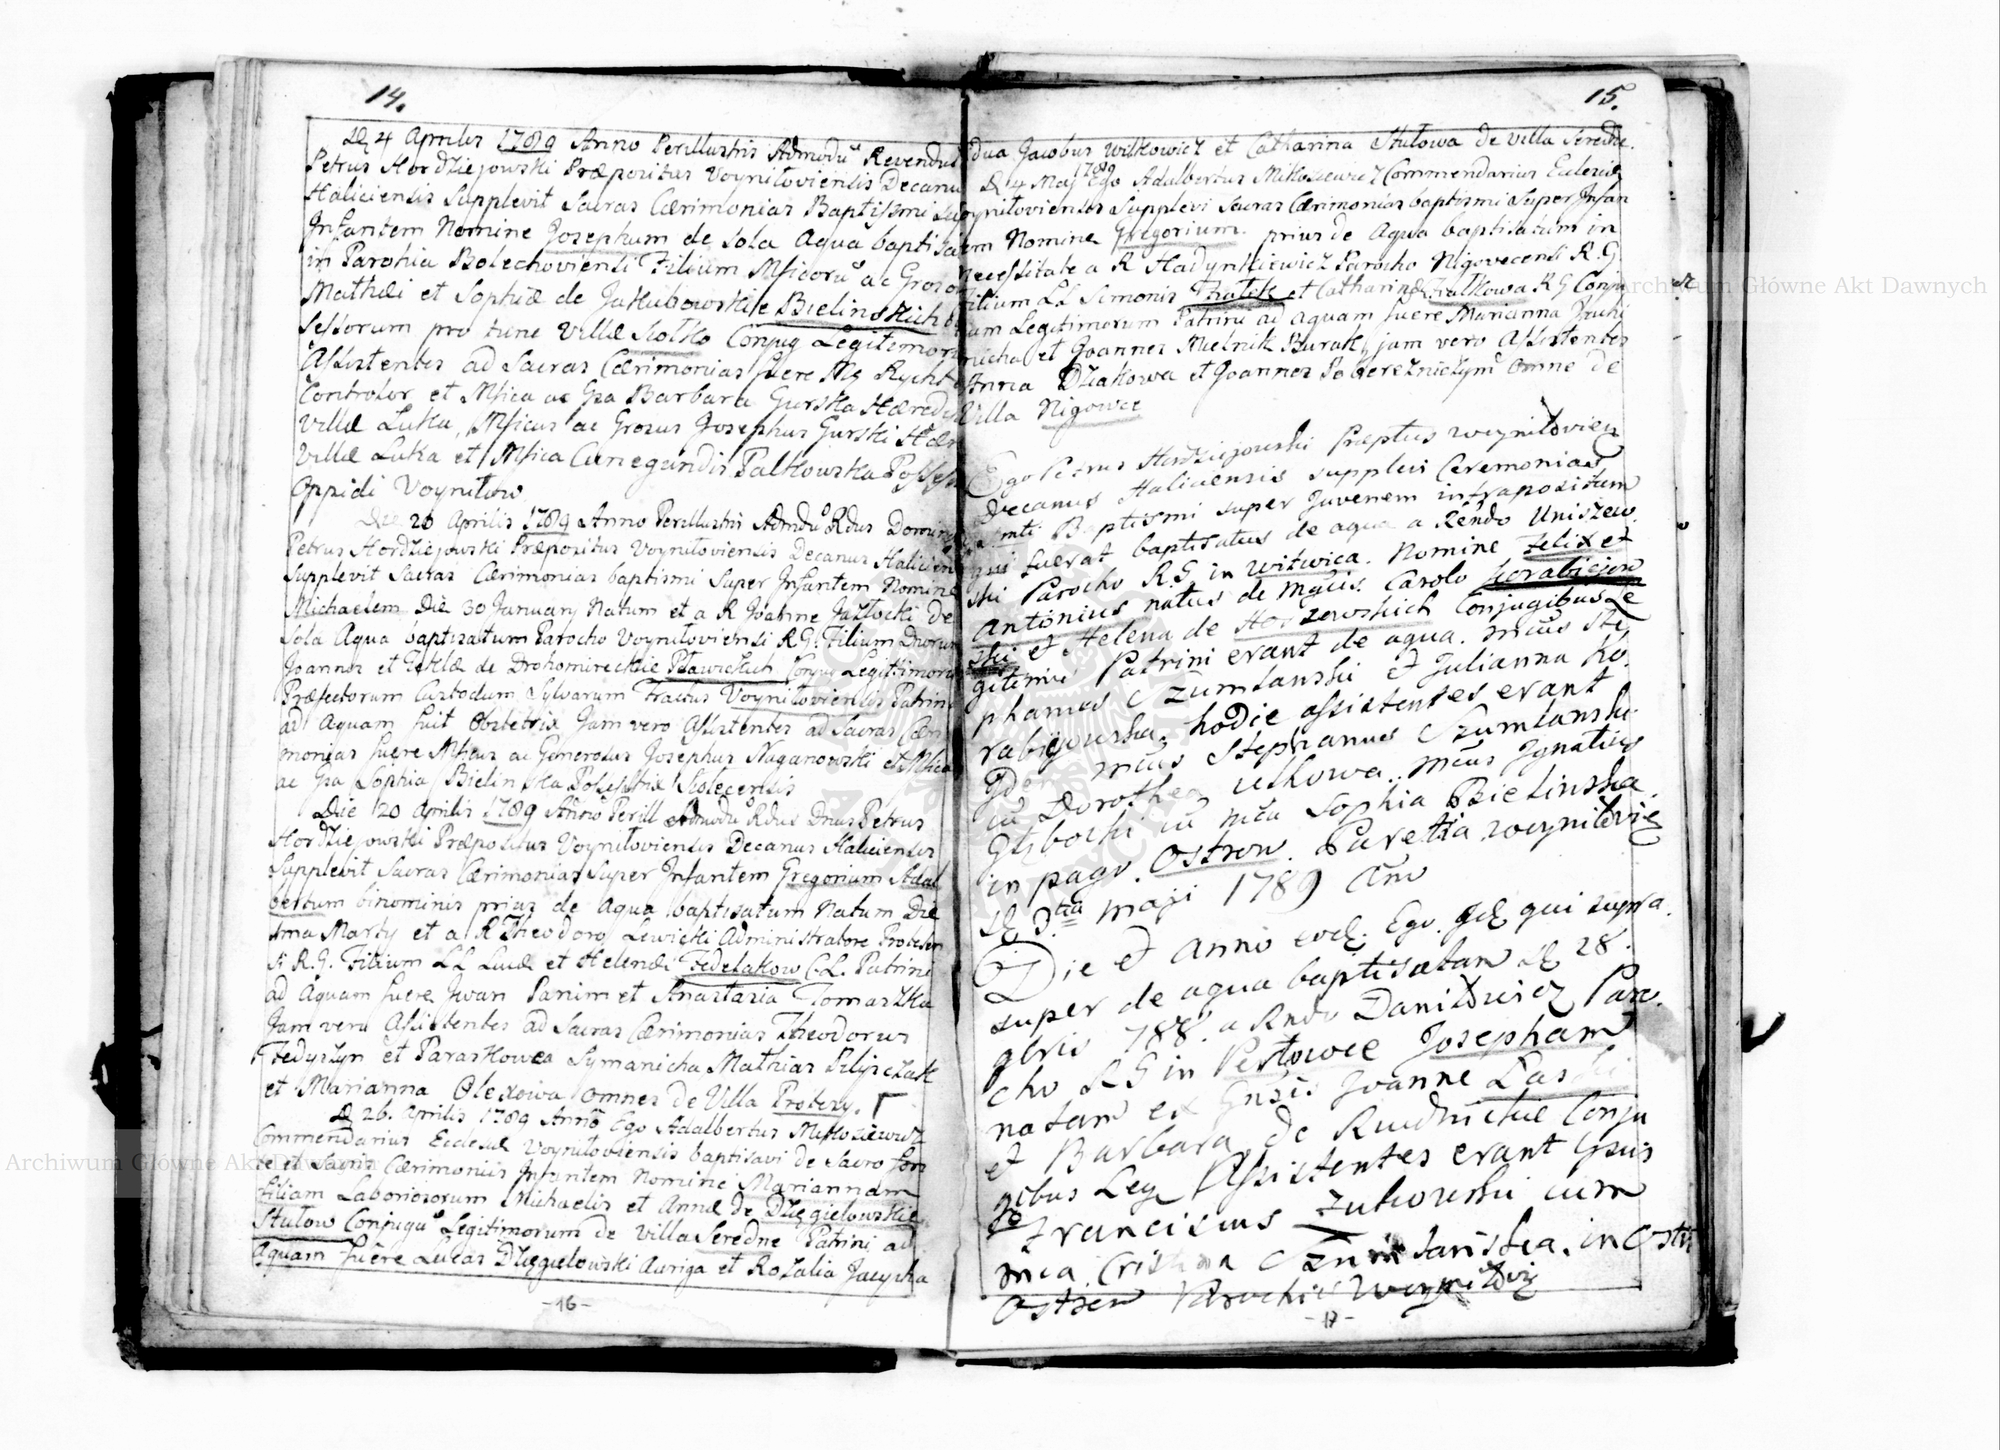 14.
De 4 Aprilis 1789 Anno Perillustris Admodu Revendus
Petrus Hordziejowski Præpositus Voyniłoviensis Decanu
Haliciensis Supplevit Sacras Cærimonias Baptismi Su
Infantem Nomine Josephum de sola Aqua baptisa
in Parohia Bolechoviensi Filium Mficoru ac Groso
Mathæi et Sophiæ de Jakubowskie Bielinskich
sessorum pro tunc Villæ Siołko Conjug Legitimor
Assistentes ad Sacras Cærimonias fuere Mg Rycht
Controlor et Mfica ac Gsa Barbara Gurska Hæred
Villæ Luka, Mficus ac Grosus Josephus Gurski Hær
Villæ Luka et Mfica Cunegundis Palkowska Possess
Oppidi Voyniłow
Die 20 Aprilis 1789 Anno Perillustris Admdu Rdus Dominus
Petrus Hordziejowski Præpositus Voyniłoviensis Decanus Halicien
Supplevit Sacras Cærimonias baptismi Super Infantem Nomine
Michaelem Die 30 January Natum et a R Joanne Jazłocki de
sola Aqua baptisatum Parocho Voyniłoviensi R.G. Filium Dnorum
Joannis et Teklæ de Drohomireckie Pławickich Conjug Legitimoru
Præfectorum Custodum Sylvarum Tractus Voyniłoviensis Patrini
ad Aquam fuit Obstetrix Jam vero Assistentes ad Sacras Cæri
monias fuere Mficus ac Generosus Josephus Naganowski et Mfica
ac Gsa Sophia Bielinska Possessrix Siolecensis
Die 20 Aprilis 1789 Anno Perill Admodu Rdus Dnus Petrus
Hordziejowski Præpositus Voyniłoviensis Decanus Haliciensis
Supplevit Sacras Cærimonias Super Infantem Gregorium Adal
bertum binominis prius de Aqua baptisatum Natum Die
ima Marty et a R Theodoro Lewicki Administratore Probesen
si R.G. Filium LL Lucæ et Helenæ Fedelakow C.L. Patrini
ad Aquam fuere Iwan Panim et Anastazia Tomaszka
Jam vero Assistentes ad Sacras Cærimonias Theodorus
Fedyszyn et Paraskowea Symanicha Mathias Pilipczak
et Marianna Olexowa omnes de Villa Probezy.
D 26 Aprilis 1789 Anno Ego Adalbertus Mikosiewicz
Commendarius Ecclesiæ Voyniłoviensis baptisavi de Sacro fon
te et Sacris Cærimoniis Infantem Nomine Mariannam
Filiam Laboriosorum Michaelis et Annæ de Dzięgielowskie
Stułow Conjugu Legitimorum de Villa Seredne Patrini ad
Aquam fuere Lucas Dzięgielowski Auriga et Rozalia Jacycha
-16-
15.
dua Jacobus Witkowicz et Catharina Stułowa de Villa Seredne.
D 4 Maj 1789 Ego Adalbertus Mikosiewicz Commendarius Eclesiæ
Voyniłoviensis Supplevi Sacras Cærimonias baptismi Super Infan
tem Nomine Gregorium prius de Aqua baptisatum in
Necessitate a R Hadynkiewicz Parocho Nigovecensi R.G
Filium LL Simonis Fratik et Catharinæ Fratkowa R G Conju
um Legitimorum Patrini ad aquam fuere Marianna
nicha et Joannes Mielnik Burak, jam vero Assistentes
Anna Dziakowa et Joannes Pobereznickym omne de
Villa Nigowce
Ego Petrus Hordziejowski Præptus woyniłovien
Decanus Haliciensis supplevi Ceremonias
Smti Baptismi super Juvenem infrapositum
qui fuerat baptisatus de aqua a Rendo Uniszew
ski Parocho R.G in witwica. Nomine Felix et
Antonius natus de Mgcis. Carolo
ski et Helena de Conjugibus Le
gitimis Patrini erant de aqua. mcus Ste
phanus Szumlanski et Julianna Ko
rabijowska, hodie assistentes erant
Jdem mcus Stephanus Szumlanski
cu Dorothea mcus Ignatius
Głibocki cu mca Sophia Bielinska.
in pago. Ostrow. Paretia woyniłovie
D 3tia maji 1789 Ano
Die et Anno eode. Ego. ide qui supra.
super de aqua baptisatam D 28
gbris 788. a Rndo Daniłowicz Paro
cho R G in Perłowce Josepham
natam ex Gnsis Joanne Laski
et Barbara de Rudnickie Conju
gibus Leg Assistentes erant Gsus
Franciscus Zukowski cum
mca. Cristina Szumlanska. in Ostr
Ostrow Parochie Woyniłovie
-17-
Archiwum Główne Akt Dawnych
Archiwum Główne Akt Dawnych